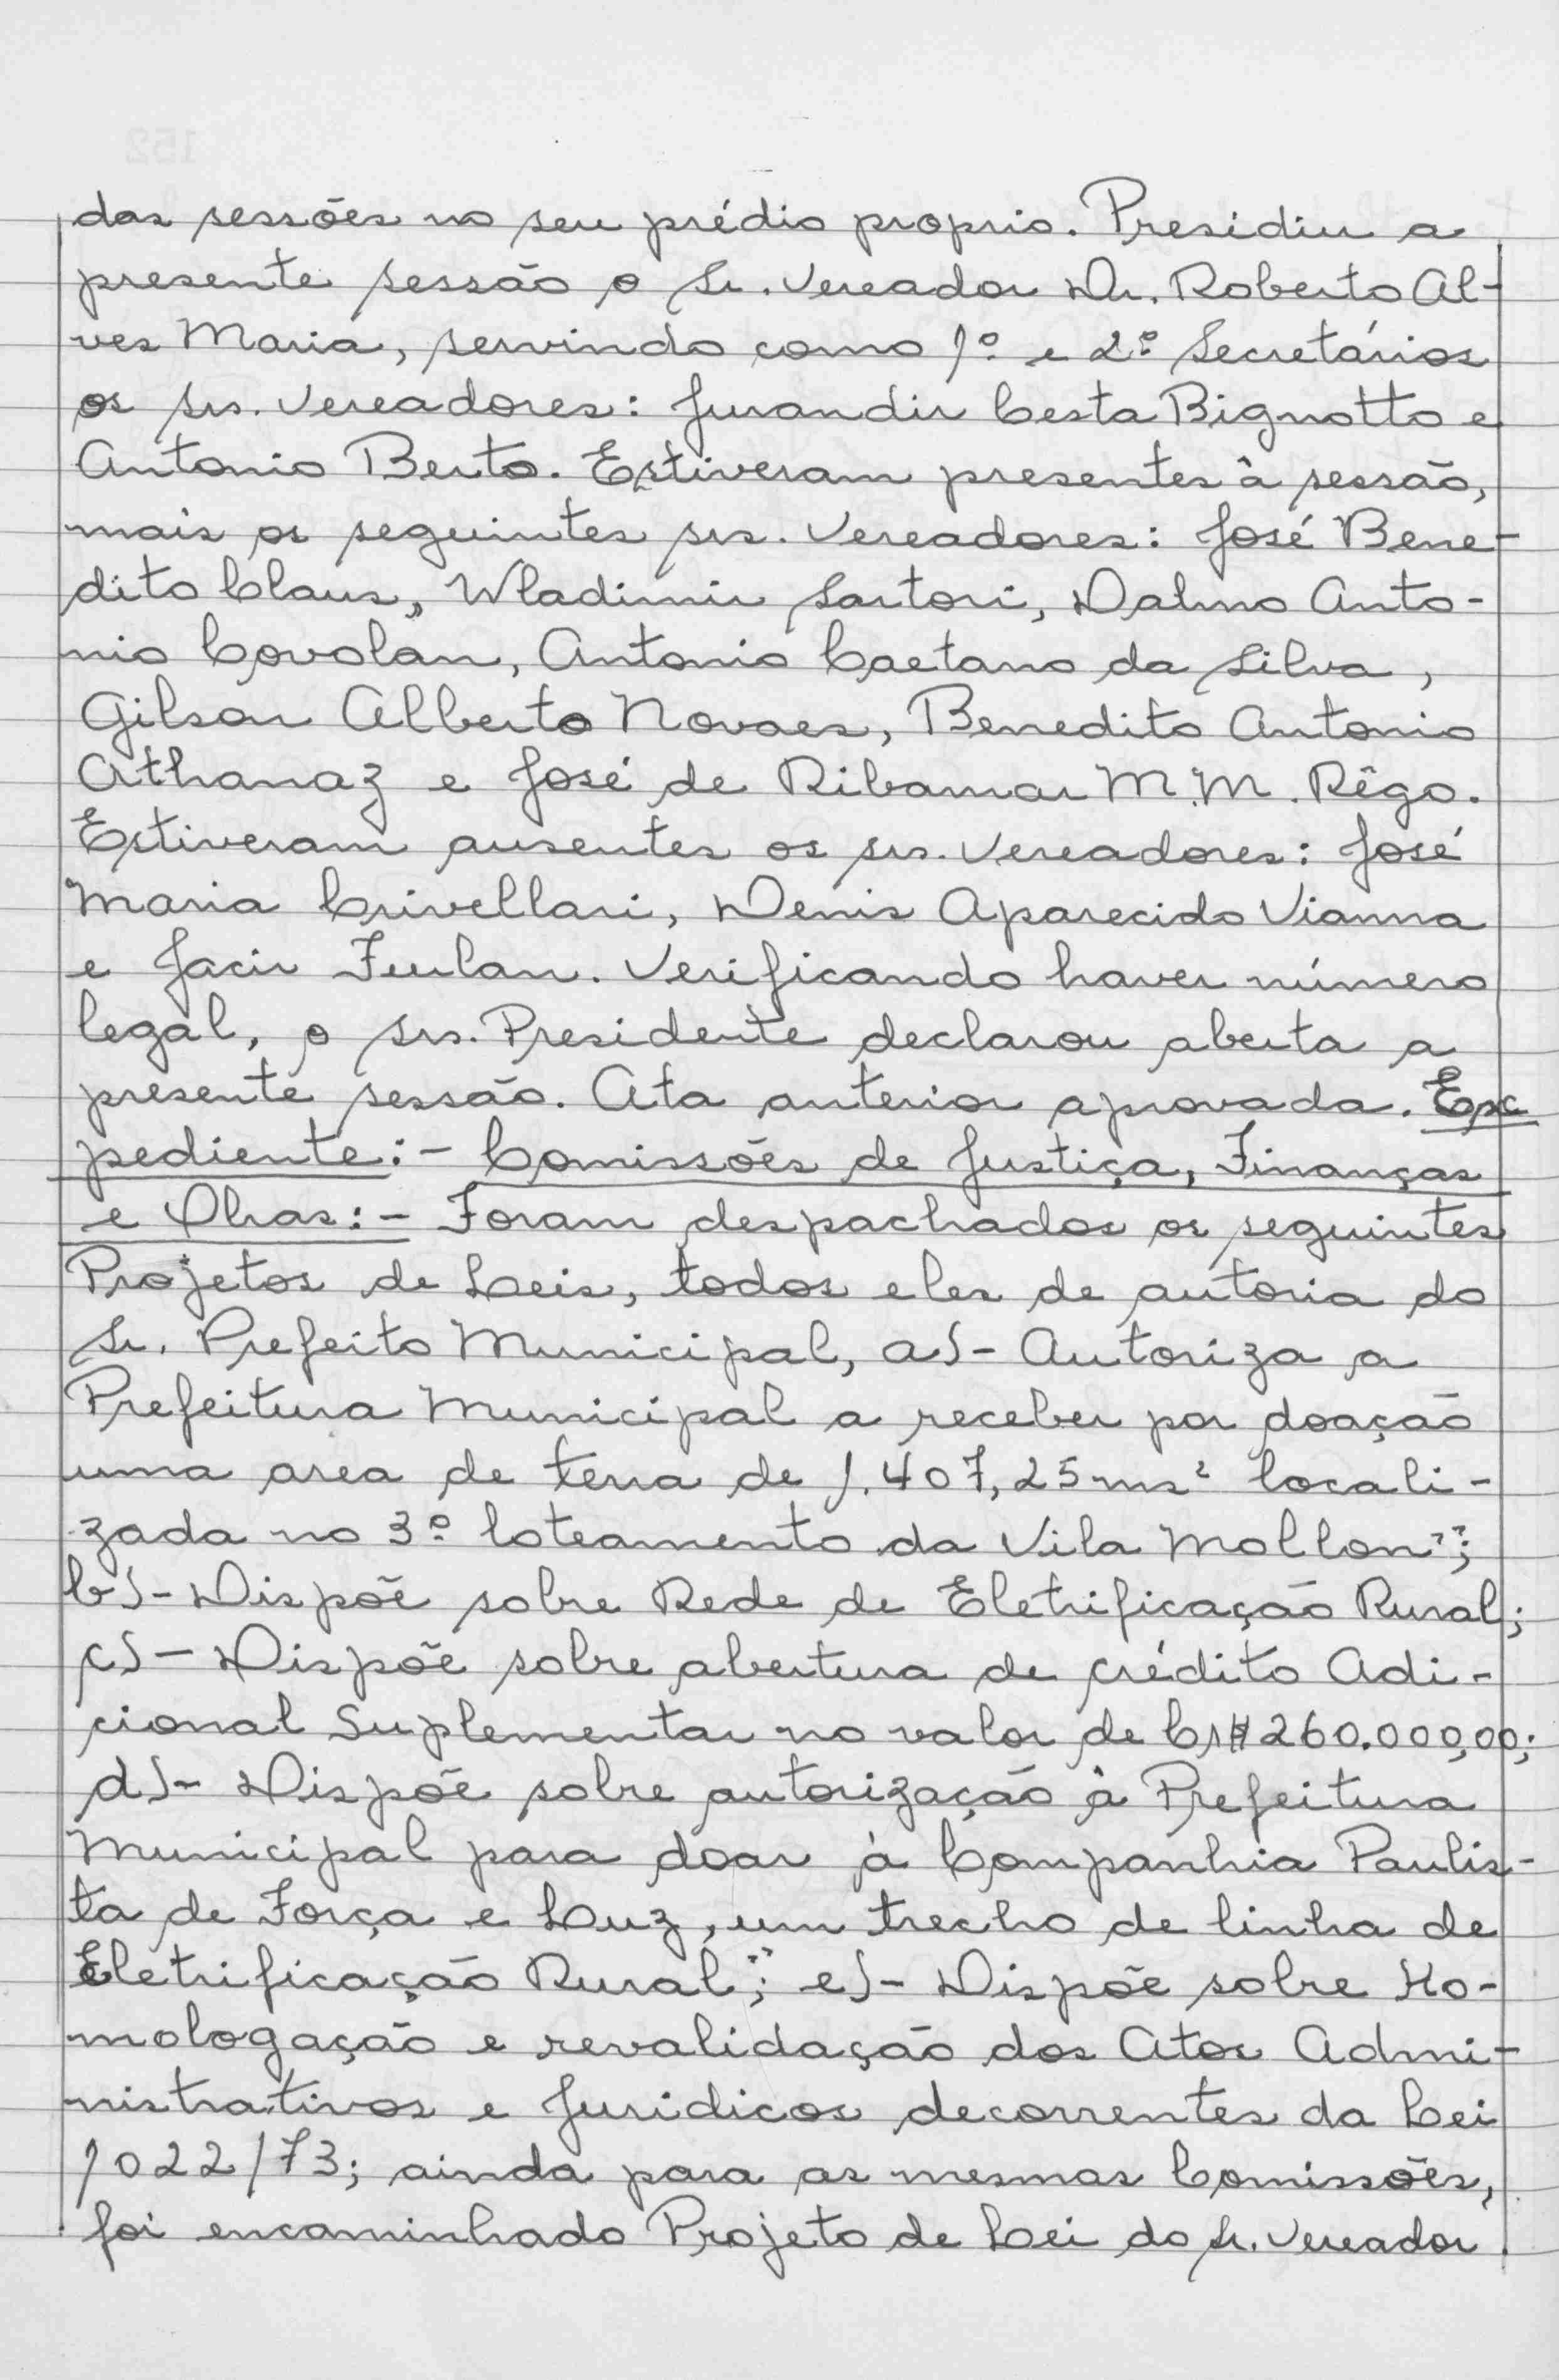 das sessões no seu prédio proprio. Presidiu a
presente sessão o Sr. Vereador Dr. Roberto Al-
ves Maria, servindo como 1º e 2º Secretários
os srs. Vereadores: Jurandir Cesta Bignotto e
Antonio Berto. Estiveram presentes à sessão,
mais os seguintes srs. Vereadores: José Bene-
dito Claus, Wladimir Sartori, Dalmo Anto-
nio Covolan, Antonio Caetano da Silva,
Gilson Alberto Novaes, Benedito Antonio
Athanaz e José de Ribamar M.M. Rêgo.
Estiveram ausentes os srs. Vereadores: José
Maria Crivellari, Denis Aparecido Vianna
e Jacir Furlan. Verificando haver número
legal, o srs. Presidente declarou aberta a
presente sessão. Ata anterior aprovada. Ex
pediente:- Comissões de Justiça, Finanças
e Obras:- Foram despachados os seguintes
Projetos de Leis, todos eles de autoria do
Sr. Prefeito Municipal, a)- Autoriza a
Prefeitura Municipal a receber por doação
uma area de terra de 1.407,25 ms² locali-
zada no 3º loteamento da Vila Mollon";
b)- Dispõe sobre Rede de Eletrificação Rural;
c)- Dispõe sobre abertura de crédito Adi-
cional Suplementar no valor de Cr$ 260.000,00;
d)- Dispõe sobre autorização à Prefeitura
Municipal para doar à Companhia Paulis-
ta de Força e Luz, um trecho de linha de
Eletrificação Rural"; e)- Dispõe sobre Ho-
mologação e revalidação dos Atos Admi-
nistrativos e Juridicos decorrentes da Lei
1022/73; ainda para as mesmas Comissões,
foi encaminhado Projeto de Lei do Sr. Vereador